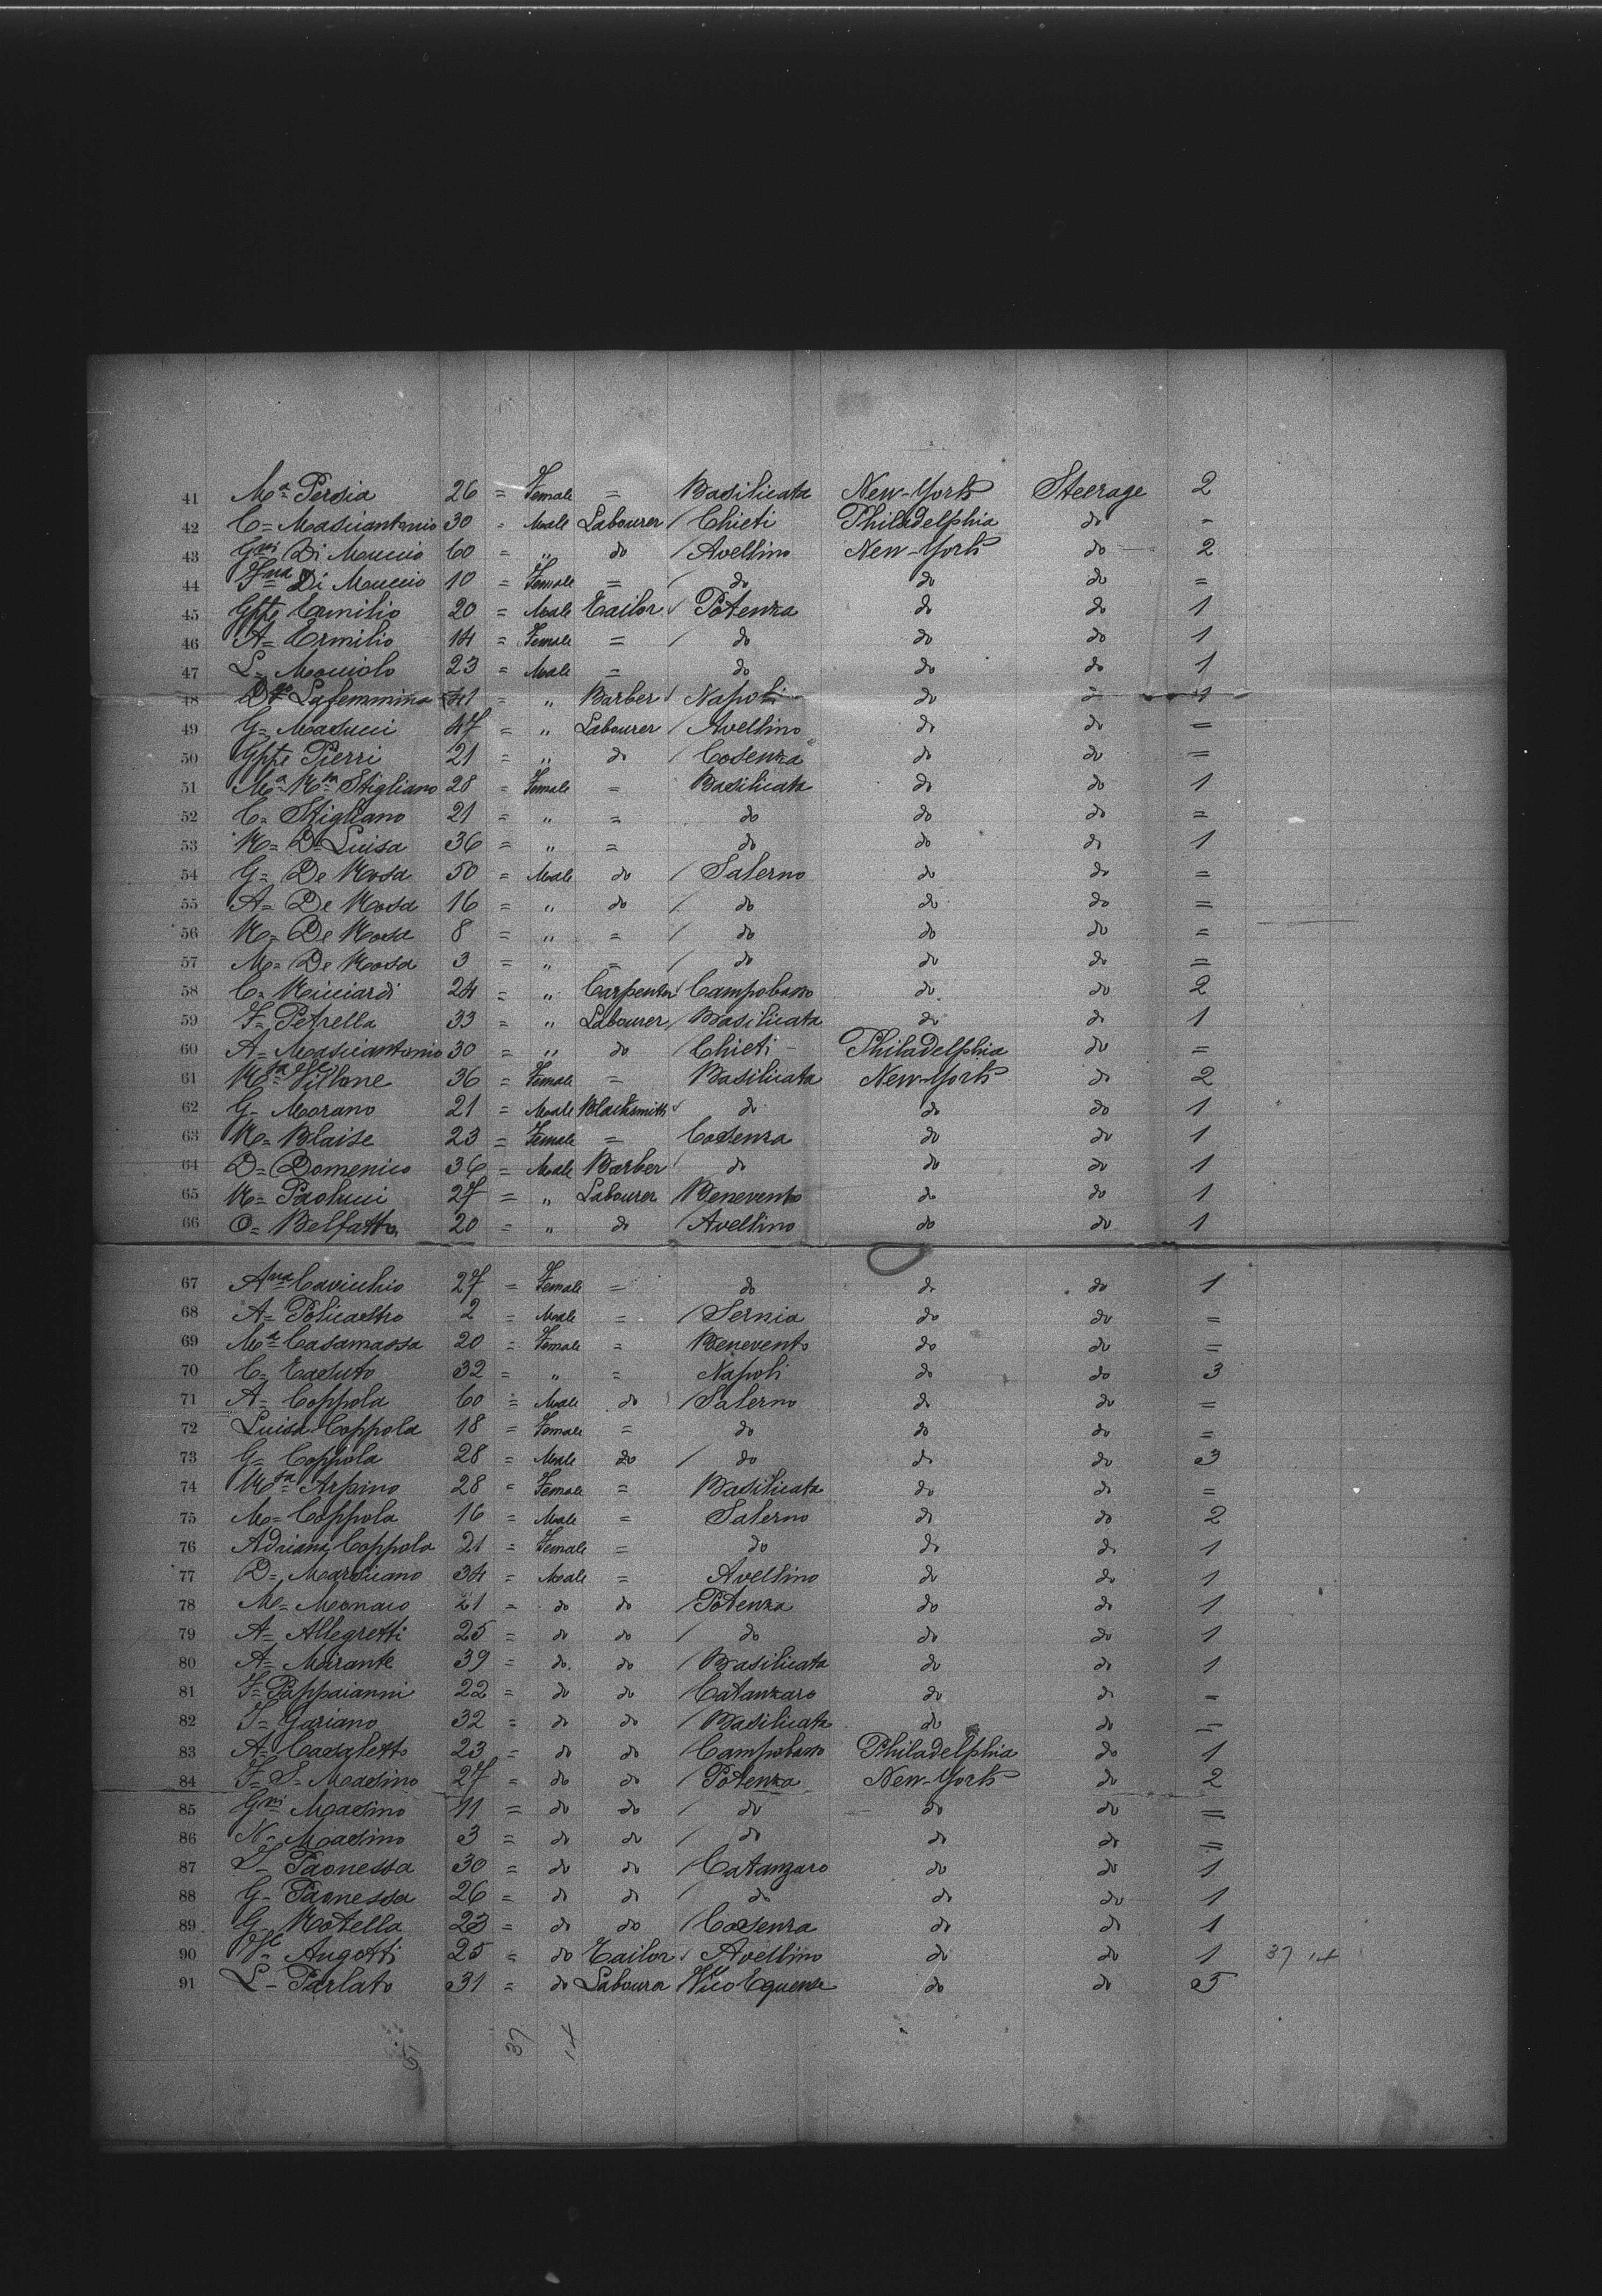 41 Ma Persia 26 = Female = Basilicata New-York Steerage 2
42 C= Masciantonio 30 = Male Labourer / Chieti Philadelphia do =
43 Gni Di Muccio 60 = " do / Avellino New-York do 2
44 Di Muccio 10 = Female = / do do do =
45 Gppe Ermilio 20 = Male Tailor / Potenza do do 1
46 A= Ermilio 14 = Female = / do do do 1
47 L= 23 = Male = do do do 1
48 Dco Lafemmina 41 = " Barber / Napoli do do 1
49 G= Masucci 47 = " Labourer / Avellino do do =
50 Gppe Pierri 21 = " do / Cosenza do do =
51 Ma Stigliano 28 = Female = Basilicata do do 1
52 C= Stigliano 21 = " = do do do =
53 R= De Luisa 36 = " = do do do 1
54 G= De Rosa 50 = Male do / Salerno do do =
55 A= De Rosa 16 = " do / do do do =
56 R= De Rosa 8 = " = / do do do =
57 M= De Rosa 3 = " = / do do do =
58 C= Ricciardi 24 = " Carpenter Campobasso do do 2
59 F= Petrella 33 = " Labourer / Basilicata do do 1
60 A= Masciantonio 30 = " do / Chieti - Philadelphia do =
61 Rsa Villone 36 = Female = Basilicata New-York do 2
62 G- Morano 21 = Male Blacksmith do do do 1
63 R= Blaise 23 = Female = Cosenza do do 1
64 D= Domenico 36 = Male Barber / do do do 1
65 R= Paolucci 27 = " Labourer Benevento do do 1
66 O= Belfatto 20 = " do / Avellino do do 1
67 Ana Cavicchio 27 = Female = do do do 1
68 A= Policastro 2 = Male = / Sernia do do =
69 Ma Casamassa 20 = Female = Benevento do do =
70 C= 32 = " = Napoli do do 3
71 A= Coppola 60 = Male do Salerno do do =
72 Luisa Coppola 18 = Female = do do do =
73 G= Coppola 28 = Male do / do do do 3
74 Rsa Arpino 28 = Female = Basilicata do do =
75 M= Coppola 16 = Male = Salerno do do 2
76 Adriana Coppola 21 = Female = do do do 1
77 D= Marsicano 34 = Male = Avellino do do 1
78 M= Monaco 21 = do do / Potenza do do 1
79 A= Allegretti 25 = do do / do do do 1
80 A= Mirante 39 = do do / Basilicata do do 1
81 F= Pappaianni 22 = do do / Catanzaro do do =
82 Gariano 32 = do do / Basilicata do do =
83 A= Casaletto 23 = do do / Campobasso Philadelphia do 1
84 F= S= Masino 27 = do do / Potenza New-York do 2
85 Gni Masino 11 = do do / do do do =
86 N- Masino 3 = do do / do do do =
87 Paonessa 30 = do do / Catanzaro do do 1
88 G- Paonessa 26 = do do / do do do 1
89 G- Rotella 23 = do do / Cosenza do do 1
90 Angotti 25 = do Tailor / Avellino do do 1 37 14
91 L- Parlato 31 = do Labourer Vico Equense do do 5
37 14